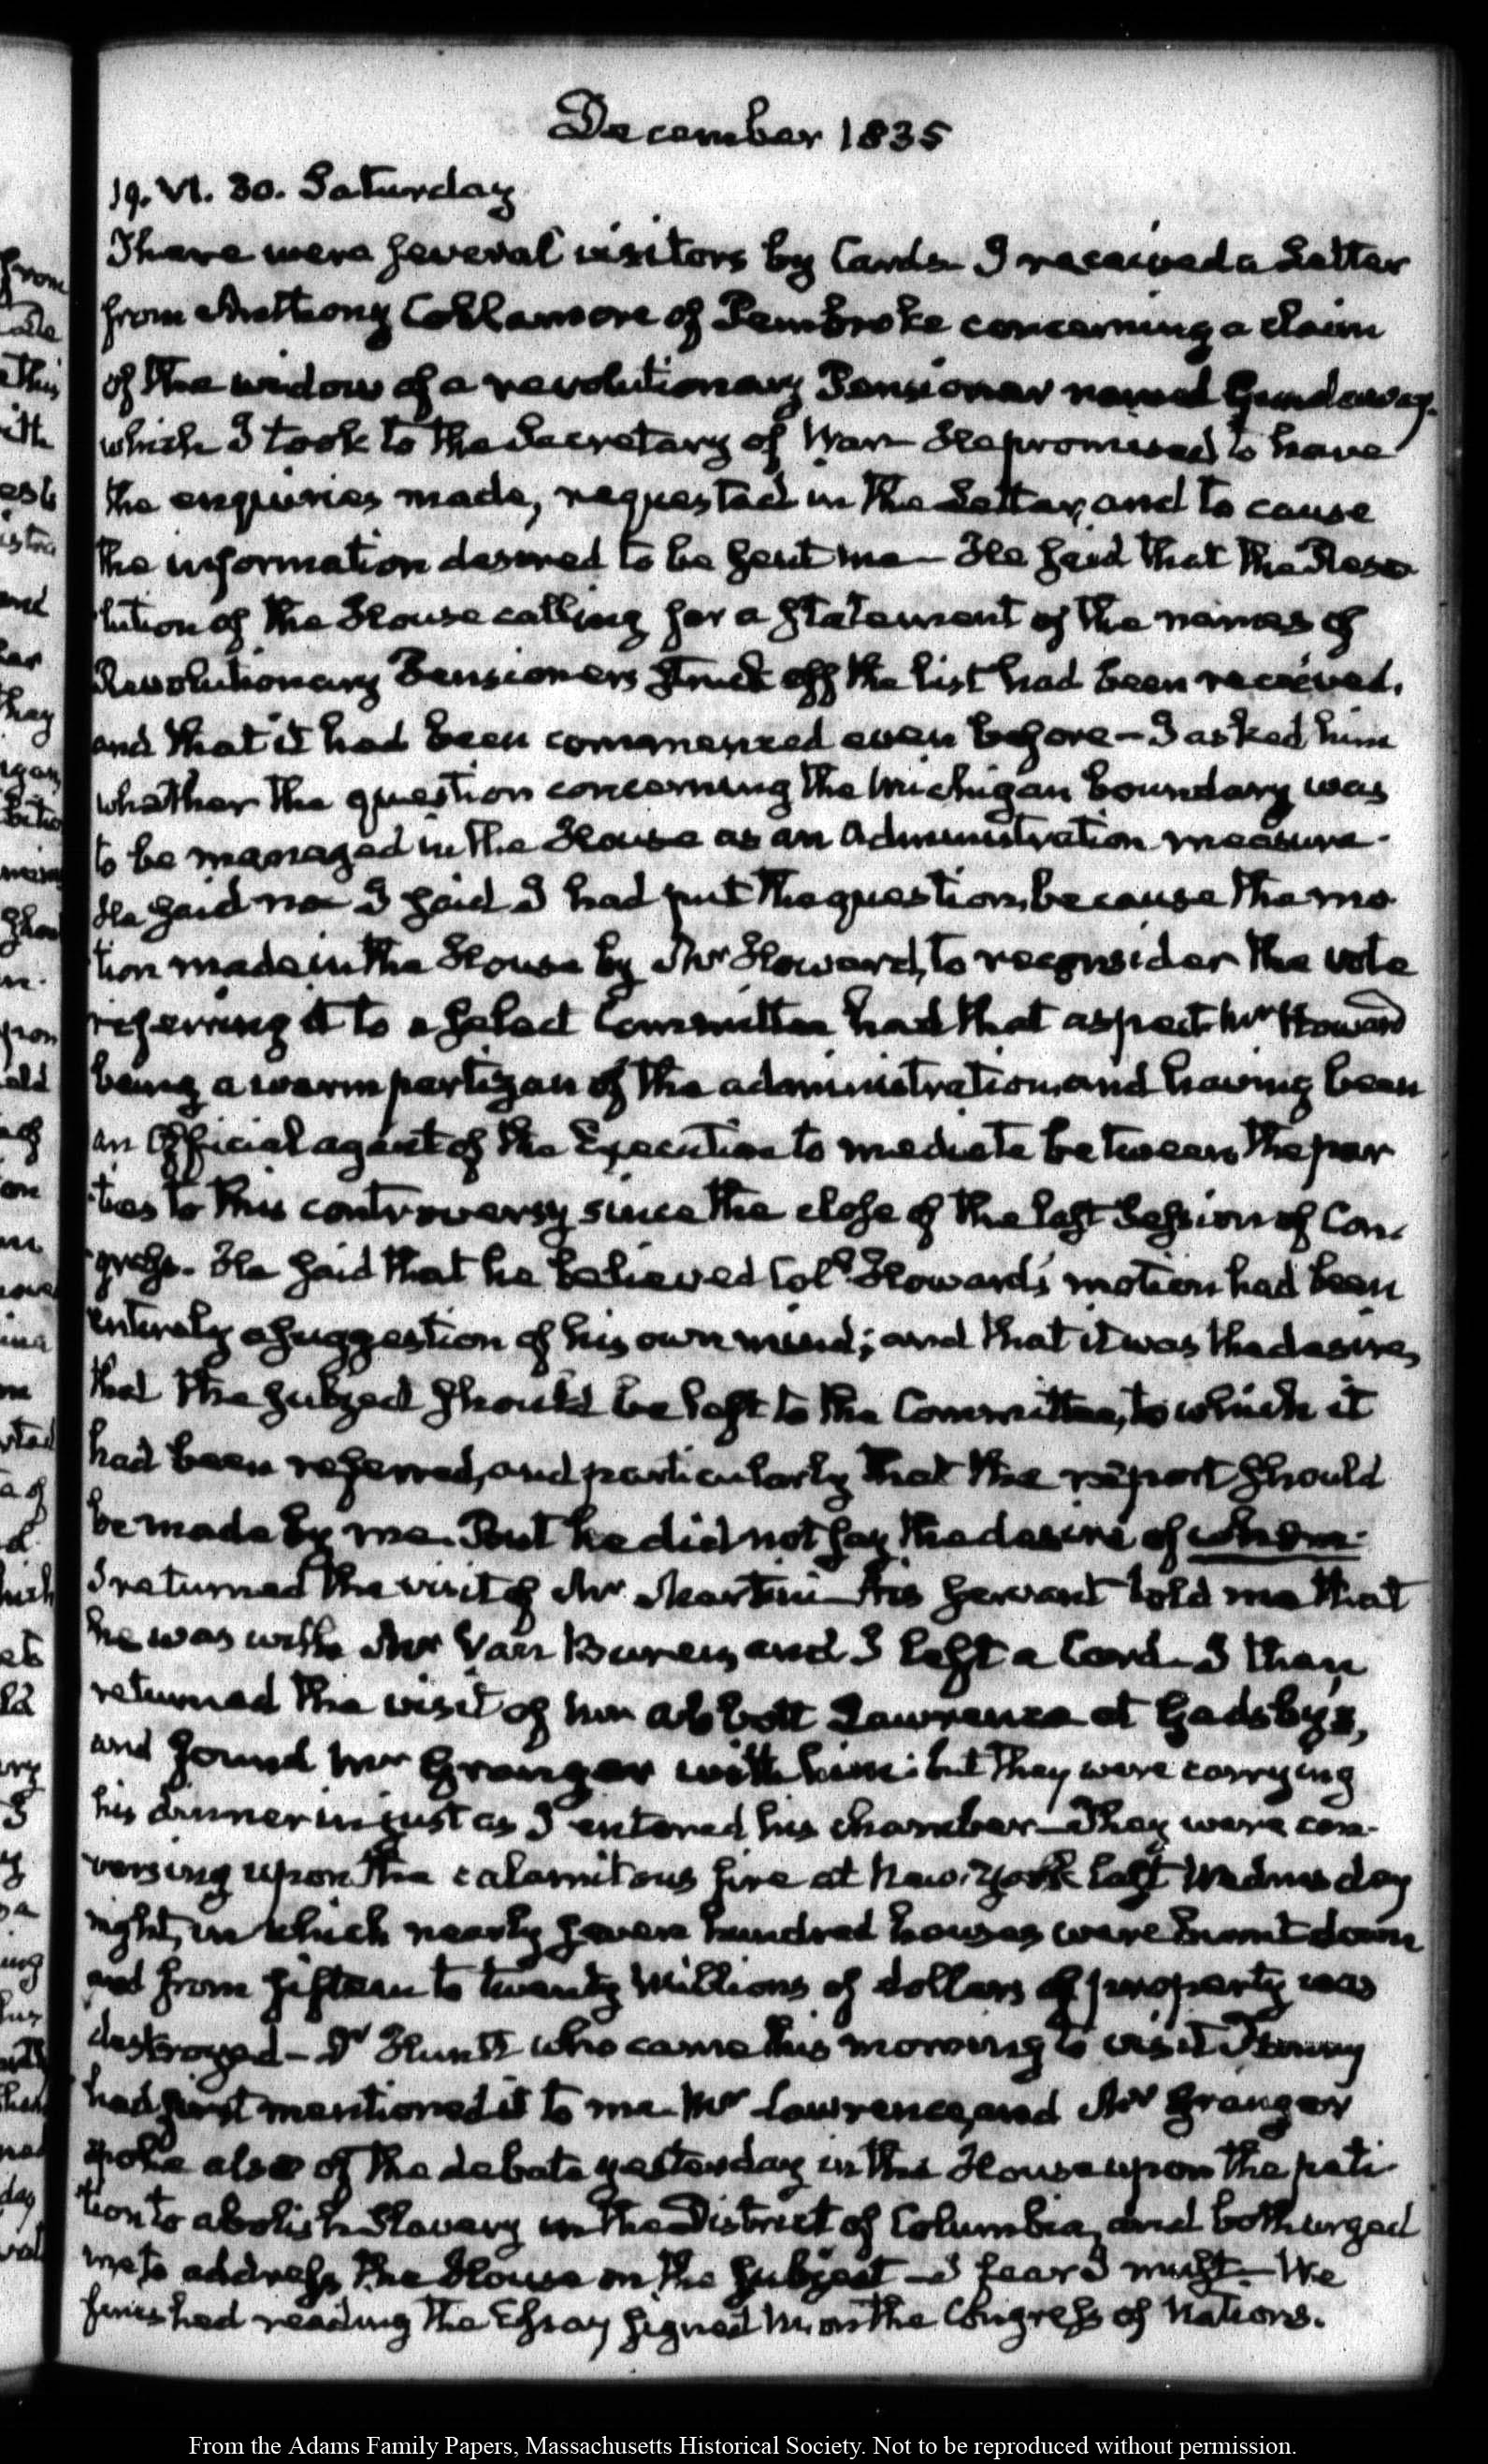 December 1835
19. VI. 30. Saturday
There were several visitors by Cards. I received a Letter
from Anthony Collamore of Pembroke concerning a claim
of the widow of a revolutionary Pensioner named
which I took to the Secretary of War. He promised to have
the enquiries made, requested in the Letter, and to cause
the information desired to be sent me— He said that the Reso
lution of the House calling for a statement of the names of
Revolutionary Pensioners struck off the list had been received,
and that it had been commenced even before— I asked him
whether the question concerning the Michigan boundary was
to be managed in the House as an Administration measure.
He said no— I said I had put the question, because the mo
tion made in the House by Mr Howard, to reconsider the vote
referring it to a select Committee had that aspect. Mr Howard
being a warm partizan of the administration, and having been
an Official agent of the Executive to mediate between the par
ties to this controversy since the close of the last Session of Con-
gress. He said that he believed Coll. Howard's motion had been
entirely a suggestion of his own mind; and that it was the desire,
that the subject should be left to the Committee, to which it
had been referred, and particularly that the report should
be made by me. But he did not say the desire of whom.
I returned the visit of Mr Martini— His servant told me that
he was with Mr Van Buren, and I left a Card— I then
returned the visit of Mr Abbott Lawrence at Gadsby's,
and found Mr Granger with him: but they were carrying
his dinner in just as I entered his chamber— They were con-
versing upon the calamitous fire at New-York last Wednesday
night, in which nearly seven hundred houses were burnt down
and from fifteen to twenty Millions of dollars of property was
destroyed— Dr Huntt who came this morning to visit
had first mentioned it to me. Mr Lawrence, and Mr Granger
spoke also of the debate yesterday in the House upon the peti
tion to abolish Slavery in the District of Columbia, and both urged
me to address the House on the subject— I fear I must— We
finished reading the Essay signed M. on the Congress of Nations.
From the Adams Family Papers, Massachusetts Historical Society. Not to be reproduced without permission.